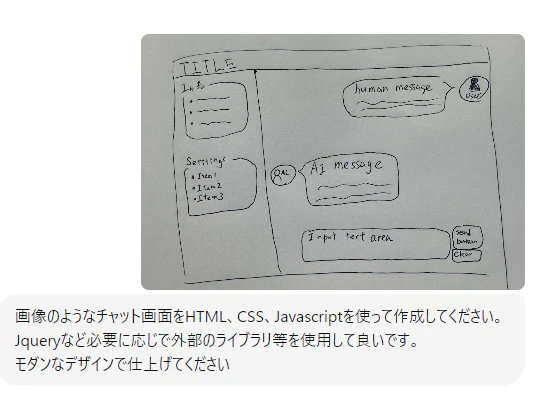 TITLE
Info
human message
user
Settings
Item1
Item2
Item3
AI
AI message
Input text area
Send
button
Clear
画像のようなチャット画面をHTML、CSS、Javascriptを使って作成してください。
Jqueryなど必要に応じで外部のライブラリ等を使用して良いです。
モダンなデザインで仕上げてください